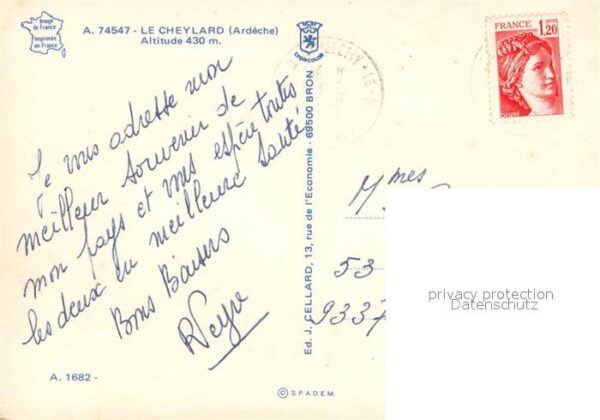 Image
de France
Imprimée
en France
A. 74547 - LE CHEYLARD (Ardèche)
Altitude 430 m.
LYONCOLOR
FRANCE
1,20
Je vous adresse mon
meilleur souvenir de
mon pays et vous espère toutes
les deux en meilleure santé
Bons Baisers
A. 1682 -
Ed. J. CELLARD, 13, rue de l'Economie - 69500 BRON
© S.P.A.D.E.M.
Mmes
53
9337
privacy protection
Datenschutz